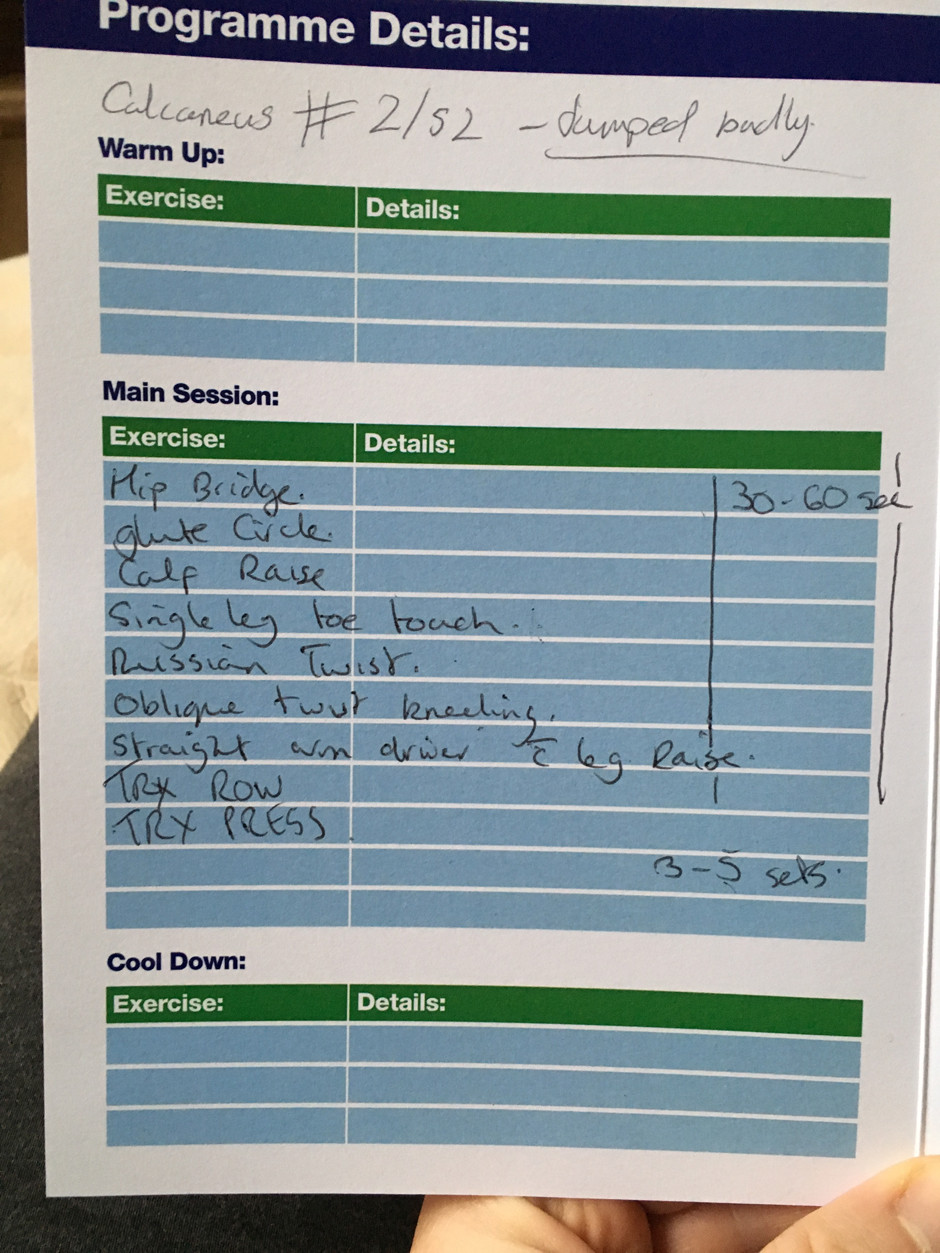 Programme Details:
Calcaneus # 2/52 - Jumped badly.
Warm Up:
Exercise: Details:
Main Session:
Exercise: Details:
Hip Bridge. 30-60 sec
glute Circle.
Calf Raise
Single leg toe touch.
Russian Twist.
Oblique twist kneeling.
Straight arm driver c̄ leg Raise.
TRX ROW
TRX PRESS
3-5 sets.
Cool Down:
Exercise: Details: